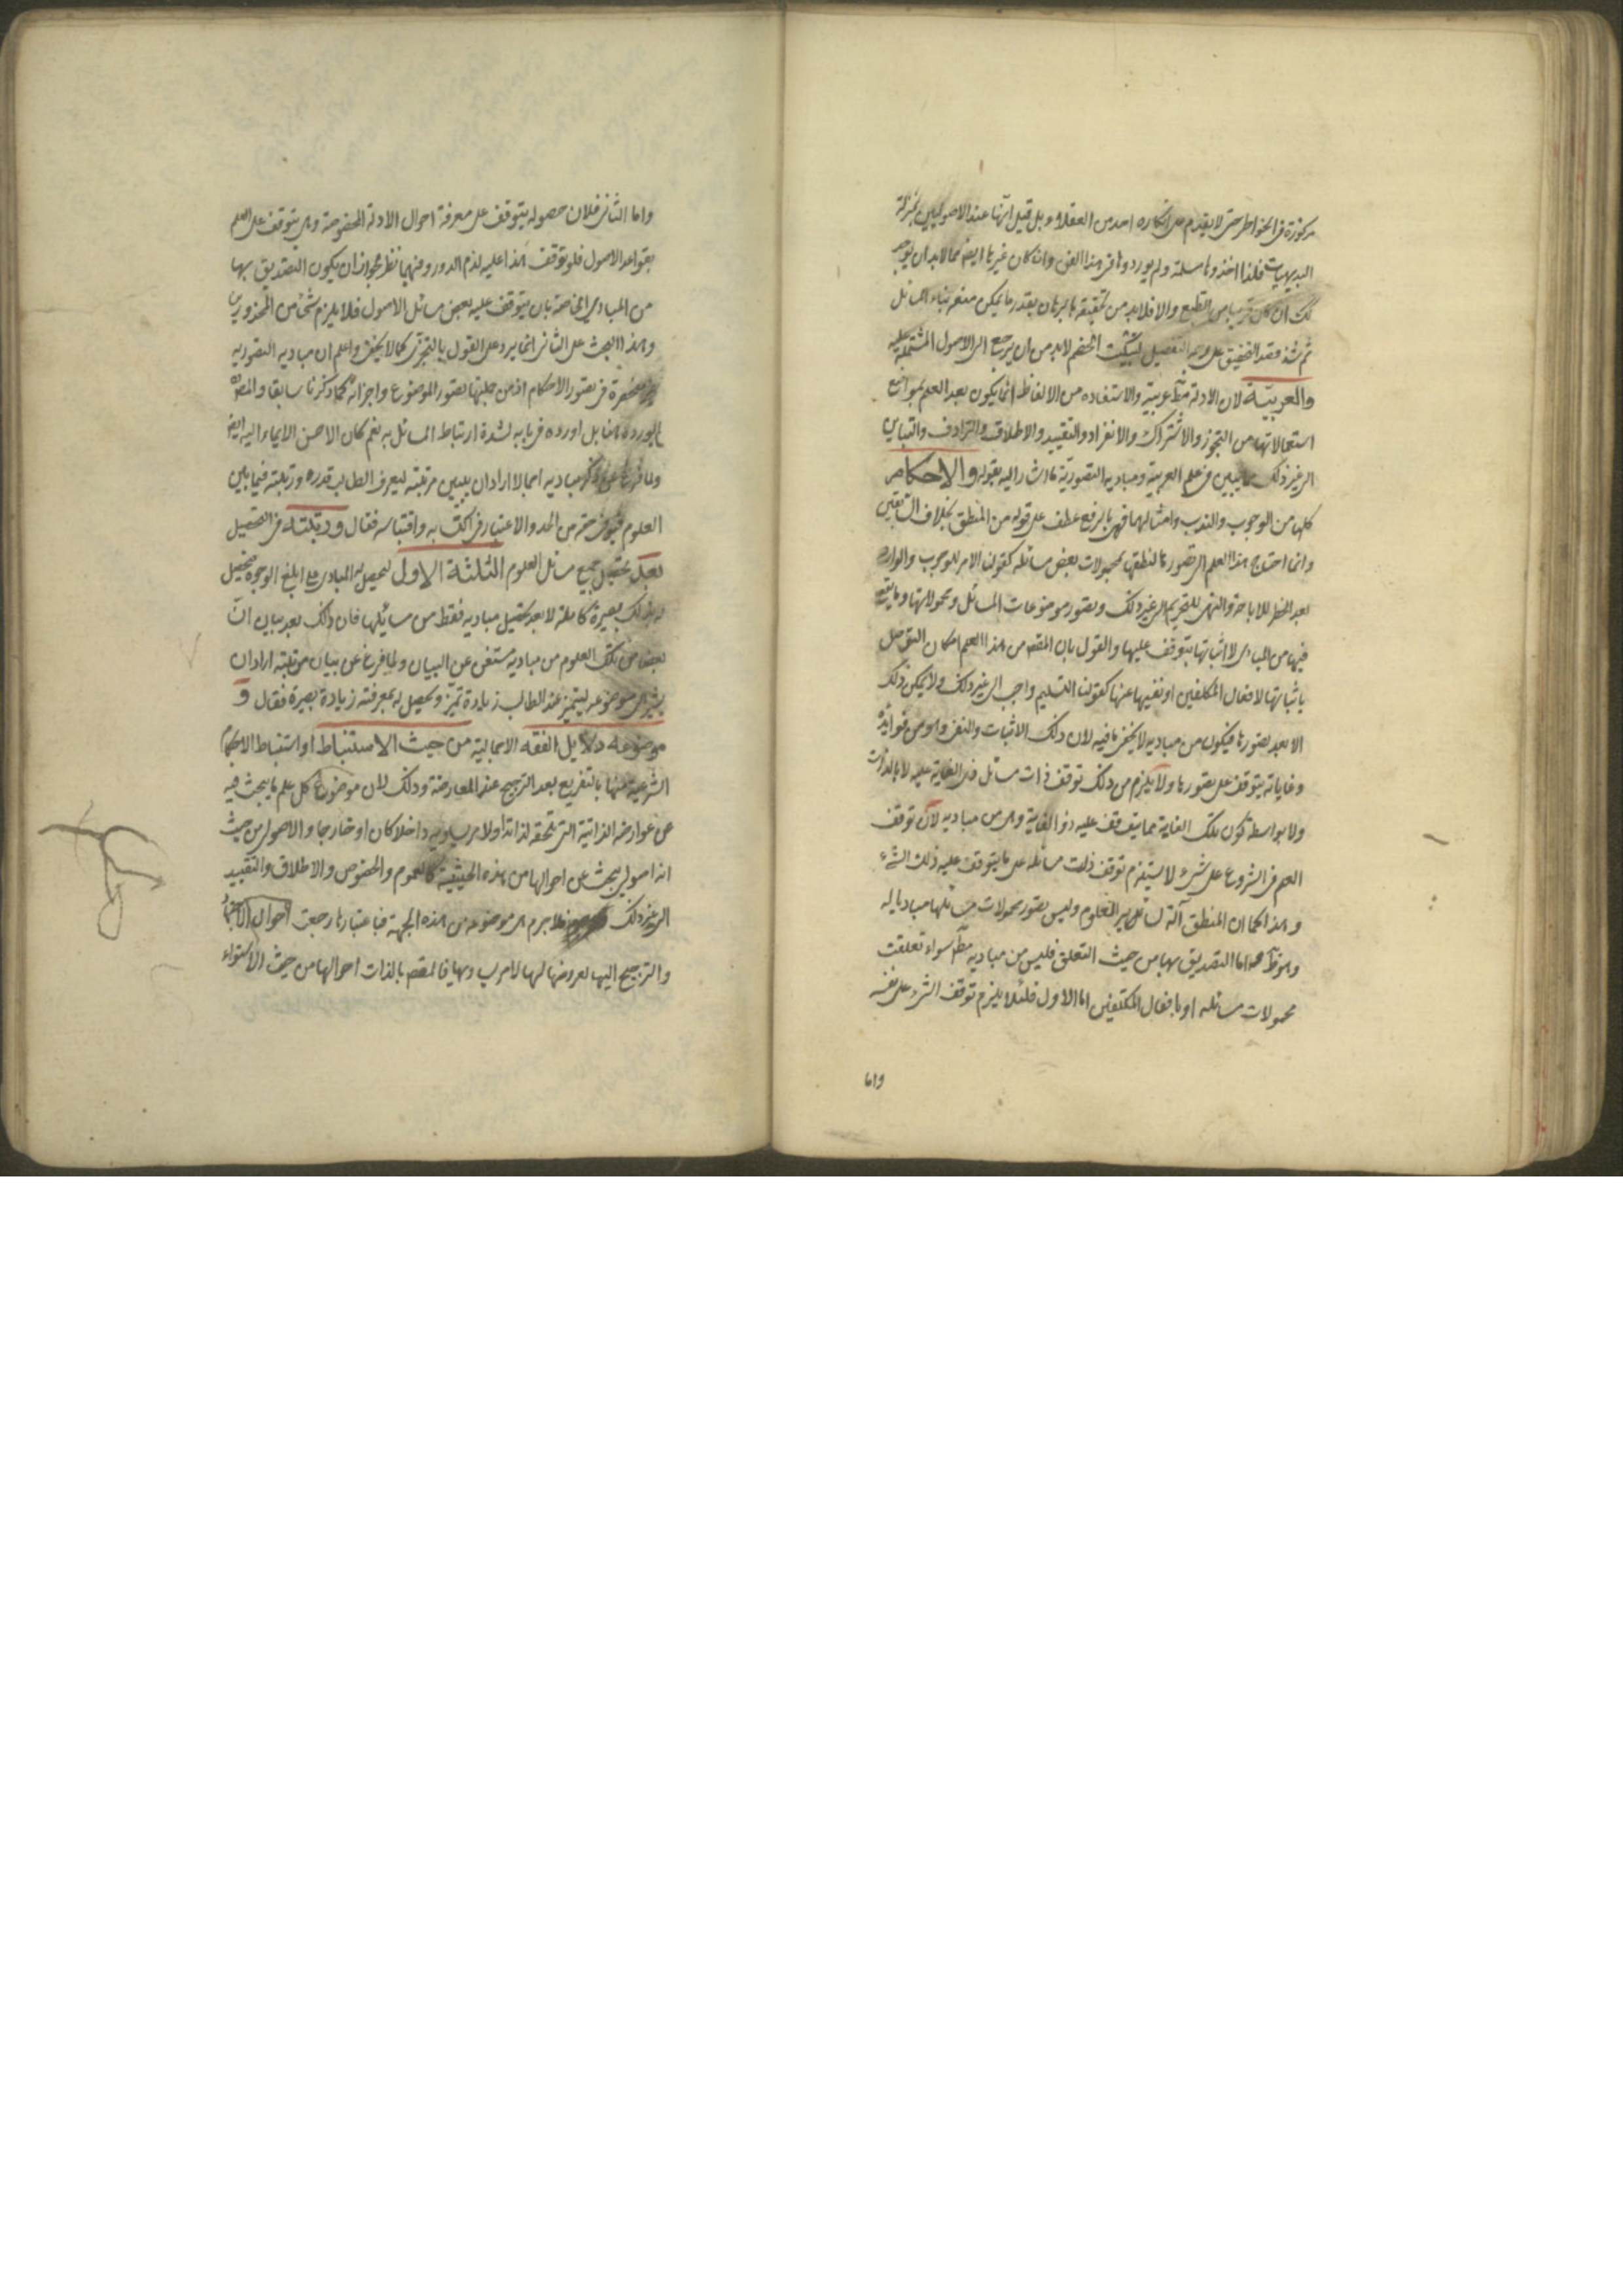 مركوزة في الخواطر حتى لا يقدم على انكاره احد من العقلاء بل قيل انها عند الاصوليين بمنزلة
البديهيات فلذا اخذوها مسلمة ولم يوردوها في هذا الفن وان كان غيرها ايضا مما لابد ان يوجد
كك ان كان قريبا من الطبع والا فلابد من تحقيقه بالبرهان بقدر ما يمكن معه بناء المسائل
ثم من قصد التحقيق على وجه التفصيل لتبكيت الخصم لابد من ان يرجع الى الاصول المشتملة عليه
والعربية لان الادلة مط عربية والاستفاده من الالفاظ انما يكون بعد العلم بمواضع
استعمالاتها من التجوز والاشتراك والانفراد والتقييد والاطلاق والترادف والتباين
الى غير ذلك مما يبين في علم العربية ومباديه التصورية ما اشار اليه بقوله والاحكام
كلها من الوجوب والندب وامثالهما فهي بالرفع عطف على قوله من المنطق بخلاف السابقين
وانما احتاج هذا العلم الى تصورها لتعلقها بمحمولات بعض مسائله كقولنا الامر للوجوب والوارد
بعد الحظر للاباحة والنهي للتحريم الى غير ذلك وتصور موضوعات المسائل ومحمولاتها وما يقع
فيها من المبادى لا اثباتها يتوقف عليها والقول بان المقصد من هذا العلم امكان التوصل
باثباتها لافعال المكلفين او نفيها عنها كقولنا التسليم واجب الى غير ذلك ولا يمكن ذلك
الا بعد تصورها فيكون من مباديه لا يخفى ما فيه لان ذلك الاثبات والنفي وهو من فوائده
وغاياته يتوقف على تصورها ولا يلزم من ذلك توقف ذات مسائل ذى الغاية عليه لا بالذات
ولا بواسطة كون تلك الغاية مما يتوقف عليه ذو الغاية وهي من مباديه لان توقف
العلم في الشروع على شيء لا يستلزم توقف ذات مسائله على ما يتوقف عليه ذلك الشيء
وهذا كما ان المنطق آلة لسائر العلوم وليس تصور محمولات مسائلها مباديا له
وهو ظ هو اما التصديق بها من حيث التعلق فليس من مباديه مط سواء تعلقت
محمولات مسائله او بافعال المكلفين اما الاول فلئلا يلزم توقف الشيء على نفسه
واما
واما الثاني فلان حصوله يتوقف على معرفة احوال الادلة المخصوصة وهي يتوقف على العلم
بقواعد الاصول فلو توقف هذا عليه لزم الدور وفيهما نظر لجواز ان يكون التصديق بها
من المبادى الخاصة بان يتوقف عليه بعض مسائل الاصول فلا يلزم شئ من المحذورين
وهذا البحث على الثاني انما يرد على القول بالتجزي كما لا يخفى واعلم ان مباديه التصورية
منحصرة في تصور الاحكام اذ من جملتها تصور الموضوع واجزائه كما ذكرنا سابقا والمصنف
لم يورده هنا بل اورده في بابه لشدة ارتباط المسائل به نعم كان الاحسن الايماء اليه ايضا
ولما فرغ عن ذكر مباديه اجمالا اراد ان يبين مرتبته ليعرف الطالب قدره ورتبته فيما بين
العلوم فيوفي حقه من الجد والاعتبار في اكتسابه واقتباسه فقال ورتبته في التحصيل
بعد تحصيل جميع مسائل العلوم الثلثة الاول لتحصيل المبادى على ابلغ الوجوه فيحصل
له بذلك بصيرة كاملة لا بعد تحصيل مباديه فقط من مسائلها فان ذلك بعد بيان ان
بعضا من تلك العلوم من مباديه مستغن عن البيان ولما فرغ عن بيان مرتبته اراد ان
يشير الى موضوعه ليتميز عند الطالب زيادة تميز ويحصل له بمعرفته زيادة بصيرة فقال و
موضوعه دلايل الفقه الاجمالية من حيث الاستنباط او استنباط الاحكام
الشرعية منها بالتفريع بعد الترجيح عند المعارضة وذلك لان موضوع كل علم ما يبحث فيه
عن عوارضه الذاتية التي تلحقه لذاتها ولامر يساويه داخلا كان او خارجا والاصولي من حيث
انه اصولي يبحث عن احوالها من هذه الحيثية كالعموم والخصوص والاطلاق والتقييد
الى غير ذلك فلا جرم هي موضوعه من هذه الجهة فباعتبارها رجعت احوال الاجتهاد
والترجيح اليها لعروضها لها لامر يساويها فالمقصد بالذات احوالها من حيث الاستواء